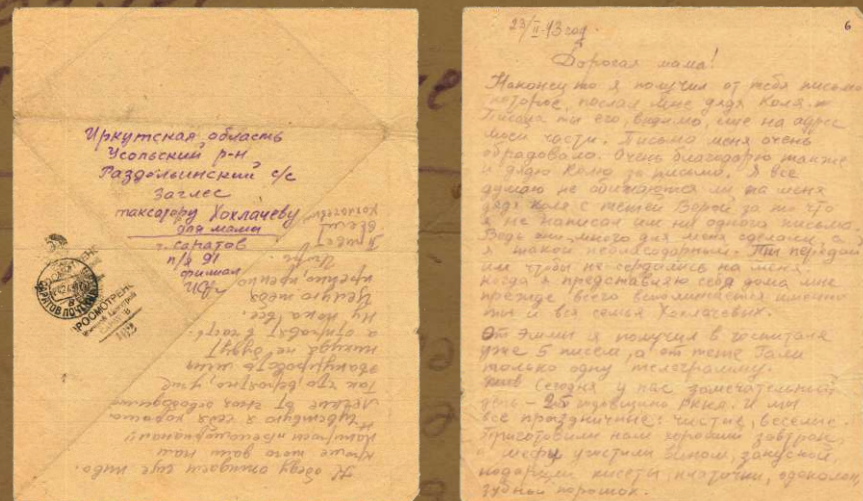 Иркутская область
Усольский р-н
Раздольинский с/с
Заглес
таксатору Хохлачеву
для мамы
г. Саратов
п/я 91
филиал
ПРОСМОТРЕНО
К обеду ожидаем еще пиво.
кроме того дали нам
Чувствую я себя хорошо
Так что, вероятно, уже
эвакуировать меня
никуда не будут
а отправят в часть.
Ну пока все.
Целую тебя
крепко, крепко
Привет
всем
6
23/II 43 год.
Дорогая мама!
Наконец то я получил от тебя письмо
которое послал мне дядя Коля.
Писала ты его, видимо, еще на адрес
моей части. Письмо меня очень
обрадовало. Очень благодарю также
и дядю Колю за письмо. Я все
думаю не обижаются ли на меня
дядя Коля с тетей Верой за то что
я не написал им ни одного письма.
Ведь они много для меня сделали, а
я такой неблагодарный. Ты передай
им чтобы не сердились на меня,
когда я представляю себе дома мне
прежде всего вспоминается именно
ты и вся семья Хохлачевых.
От Эммы я получил в госпитале
уже 5 писем, а от тети Гали
только одну телеграмму.
Сегодня у нас замечательный
день - 25 годовщина РККА. И мы
все праздничные: чистые, веселые.
Приготовили нам хороший завтрак,
шефы угостили вином, закуской,
подарили кисеты, платочки, одеколон
зубной порошок.